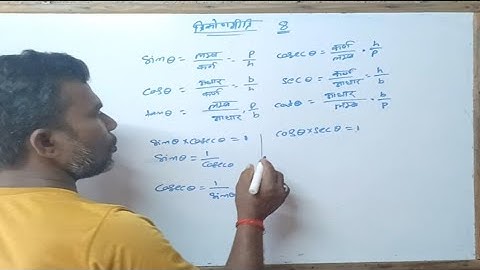 त्रिकोणमीति 8
sinθ = लम्ब/कर्ण = P/h
cosecθ = कर्ण/लम्ब = h/P
cosθ = आधार/कर्ण = b/h
secθ = कर्ण/आधार = h/b
tanθ = लम्ब/आधार = P/b
cotθ = आधार/लम्ब = b/P
sinθ × cosecθ = 1
sinθ = 1/cosecθ
cosecθ = 1/sinθ
cosθ × secθ = 1